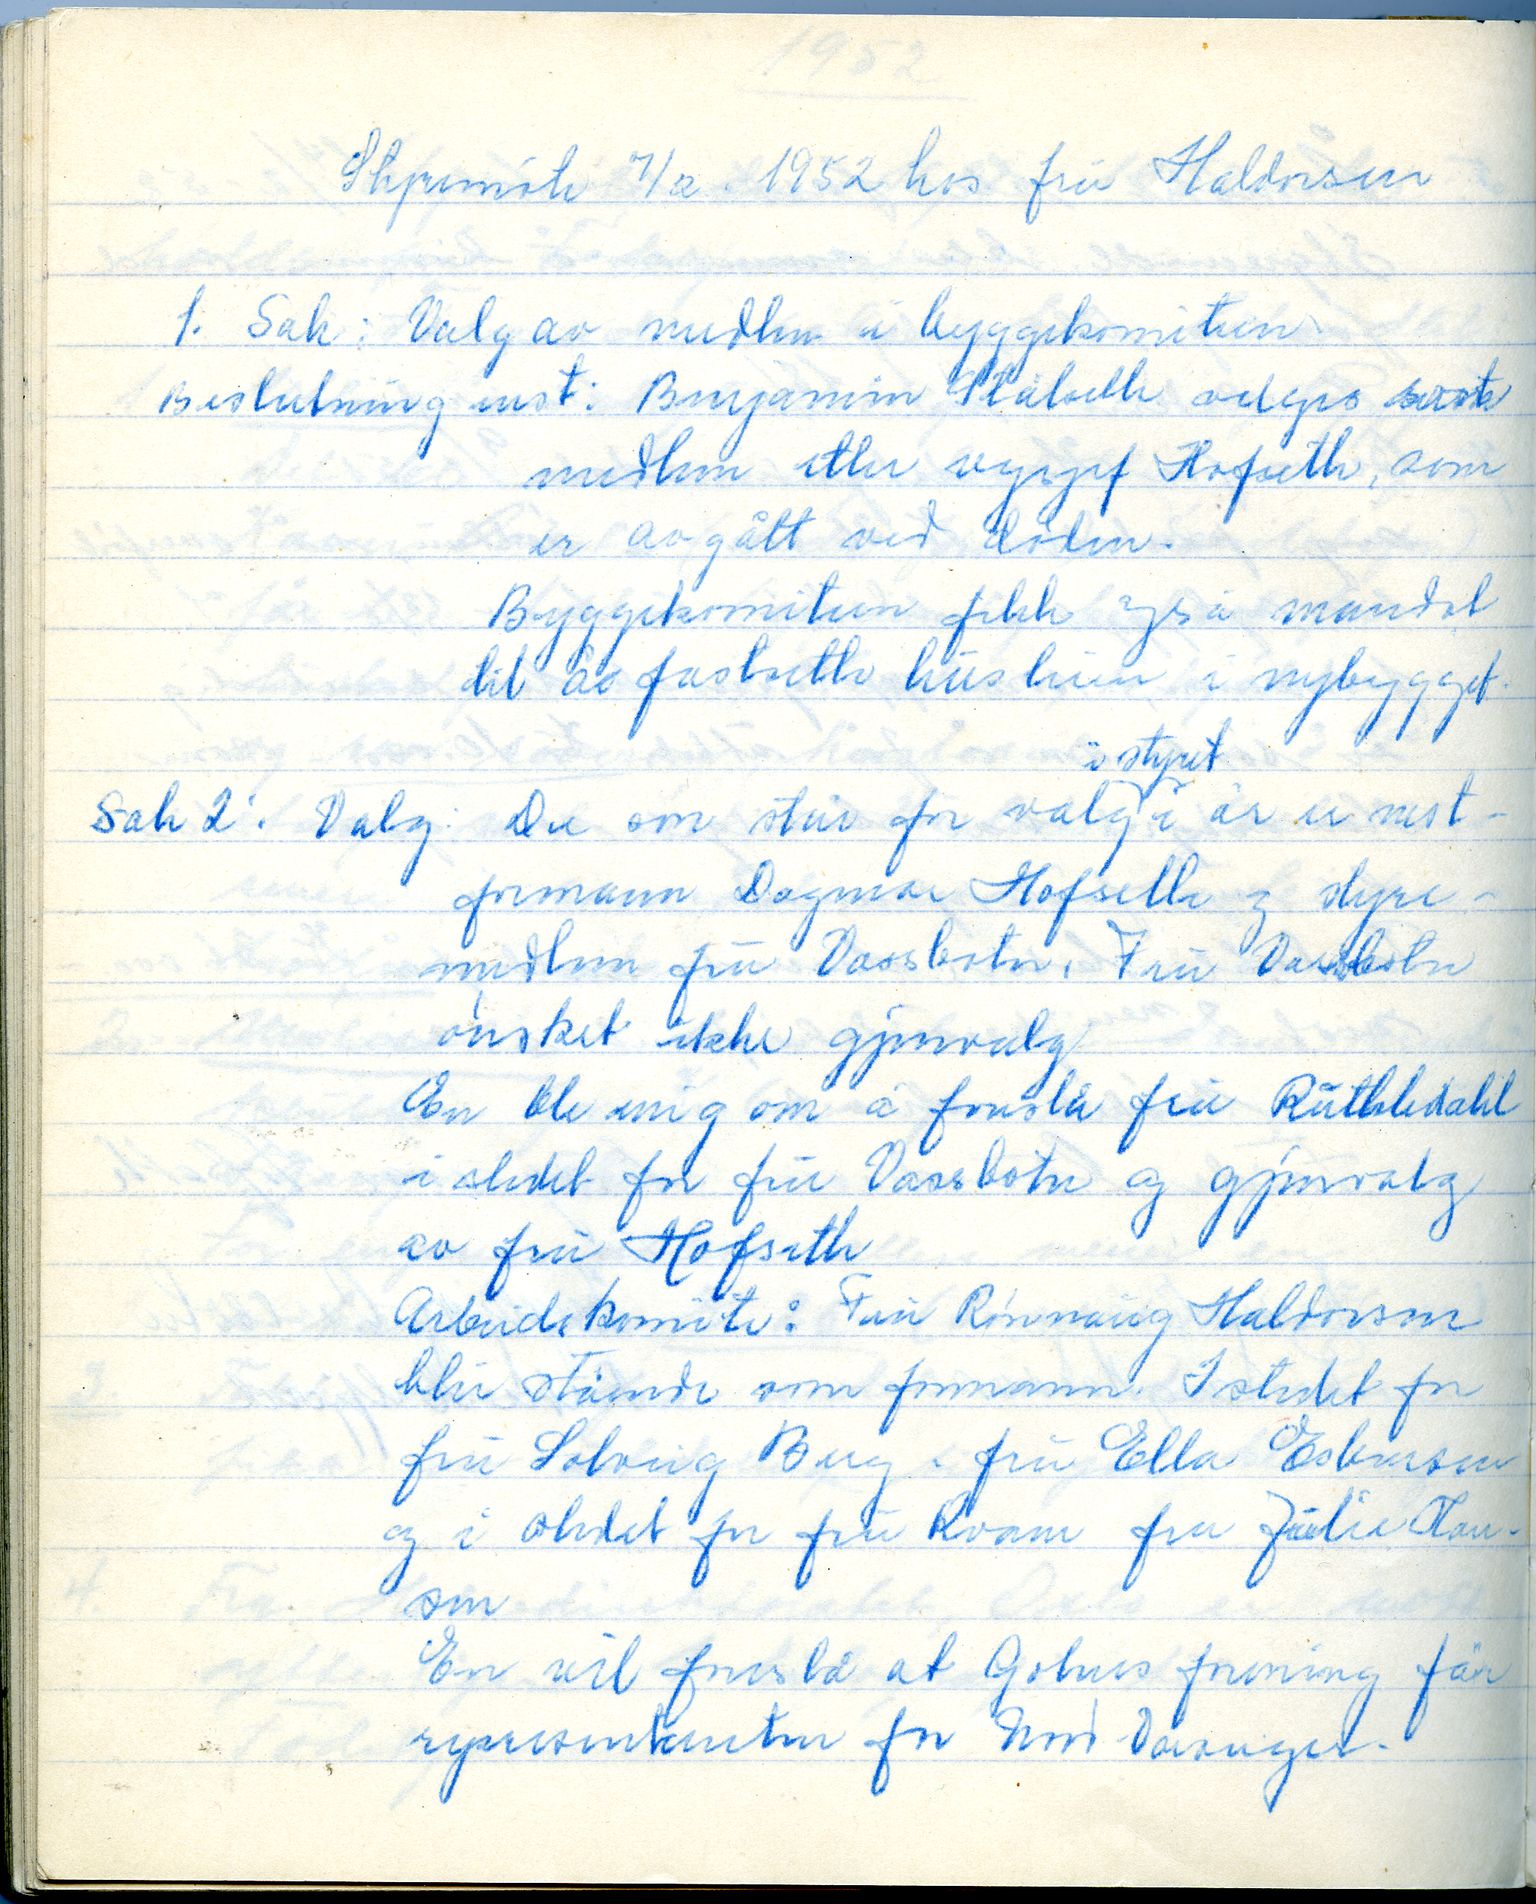 1952
Styremöte 7/2. 1952 hos frü Haldorsen
1. Sak: Valg av medlem i byggekomiteen.
Beslutning enst: Benjamin Stålseth velges som
medlem etter byggef Hofseth, som
er avgått ved döden.
Byggekomiteen fikk også mandat
til å fastsette hüsleien i nybygget.
i styret
Sak 2: Valg: De som står for valg i år er nest-
formann Dagmar Hofseth og styre-
medlem frü Vassbotn. Frü Vassbotn
önsket ikke gjenvalg
En ble enig om å foreslå frü Rüthledahl
i stedet for frü Vassbotn og gjenvalg
av frü Hofseth
Arbeidskomite: Frü Rönnaüg Haldorsen
blir stående som formann. I stedet for
frü Solveig Berg, frü Ella Esbensen
og i stedet for frü Kvam frü Jülie Han-
sen
En vil foreslå at Golnes forening får
representanten for Nord-Varanger.